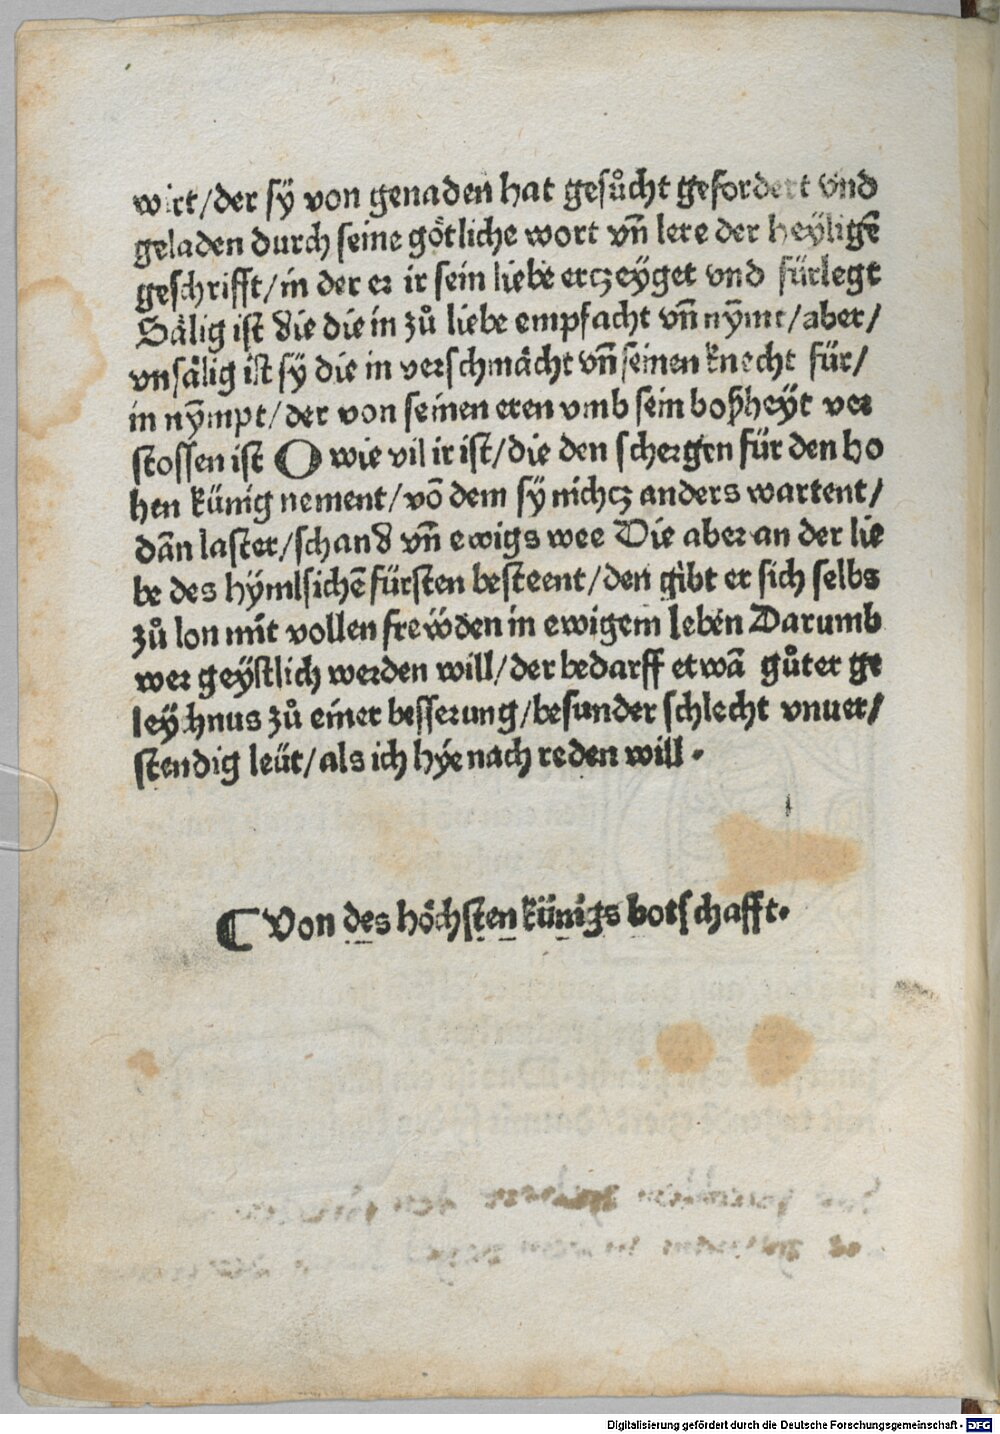 wirt/der sÿ von genaden hat gesůcht gefordert vnd
geladen durch seine götliche wort vñ lere der heÿligẽ
geschrifft/in der er ir sein liebe ertzeÿget vnd fürlegt
Sälig ist die die in zů liebe empfacht vñ nÿmt/aber/
vnsälig ist sÿ die in verschmächt vñ seinen knecht für/
in nÿmpt/der von seinen eren vmb sein boßheÿt ver
stossen ist O wie vil ir ist/die den schergen für den ho
hen künig nement/võ dem sÿ nichtz anders wartent/
dãn laster/schand vñ ewigs wee Die aber an der lie
be des hÿmlsichẽ fürsten besteent/den gibt er sich selbs
zů lon mit vollen frewden in ewigem leben Darumb
wer geÿstlich werden will/der bedarff etwã gůter ge
leÿchnus zů einer besserung/besunder schlecht vnuer/
stendig leüt/als ich hÿe nach reden will.
¶ Von des höchsten künigs botschafft.
Digitalisierung gefördert durch die Deutsche Forschungsgemeinschaft - DFG